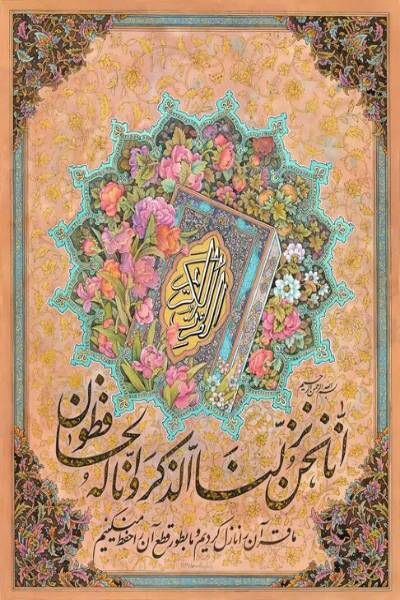 القرآن الكريم
بسم الله الرحمن الرحیم
انّا نحن نزّلنا الذکر و انّا له لحافظون
ما قرآن را نازل کردیم و ما بطور قطع آن را حفظ میکنیم